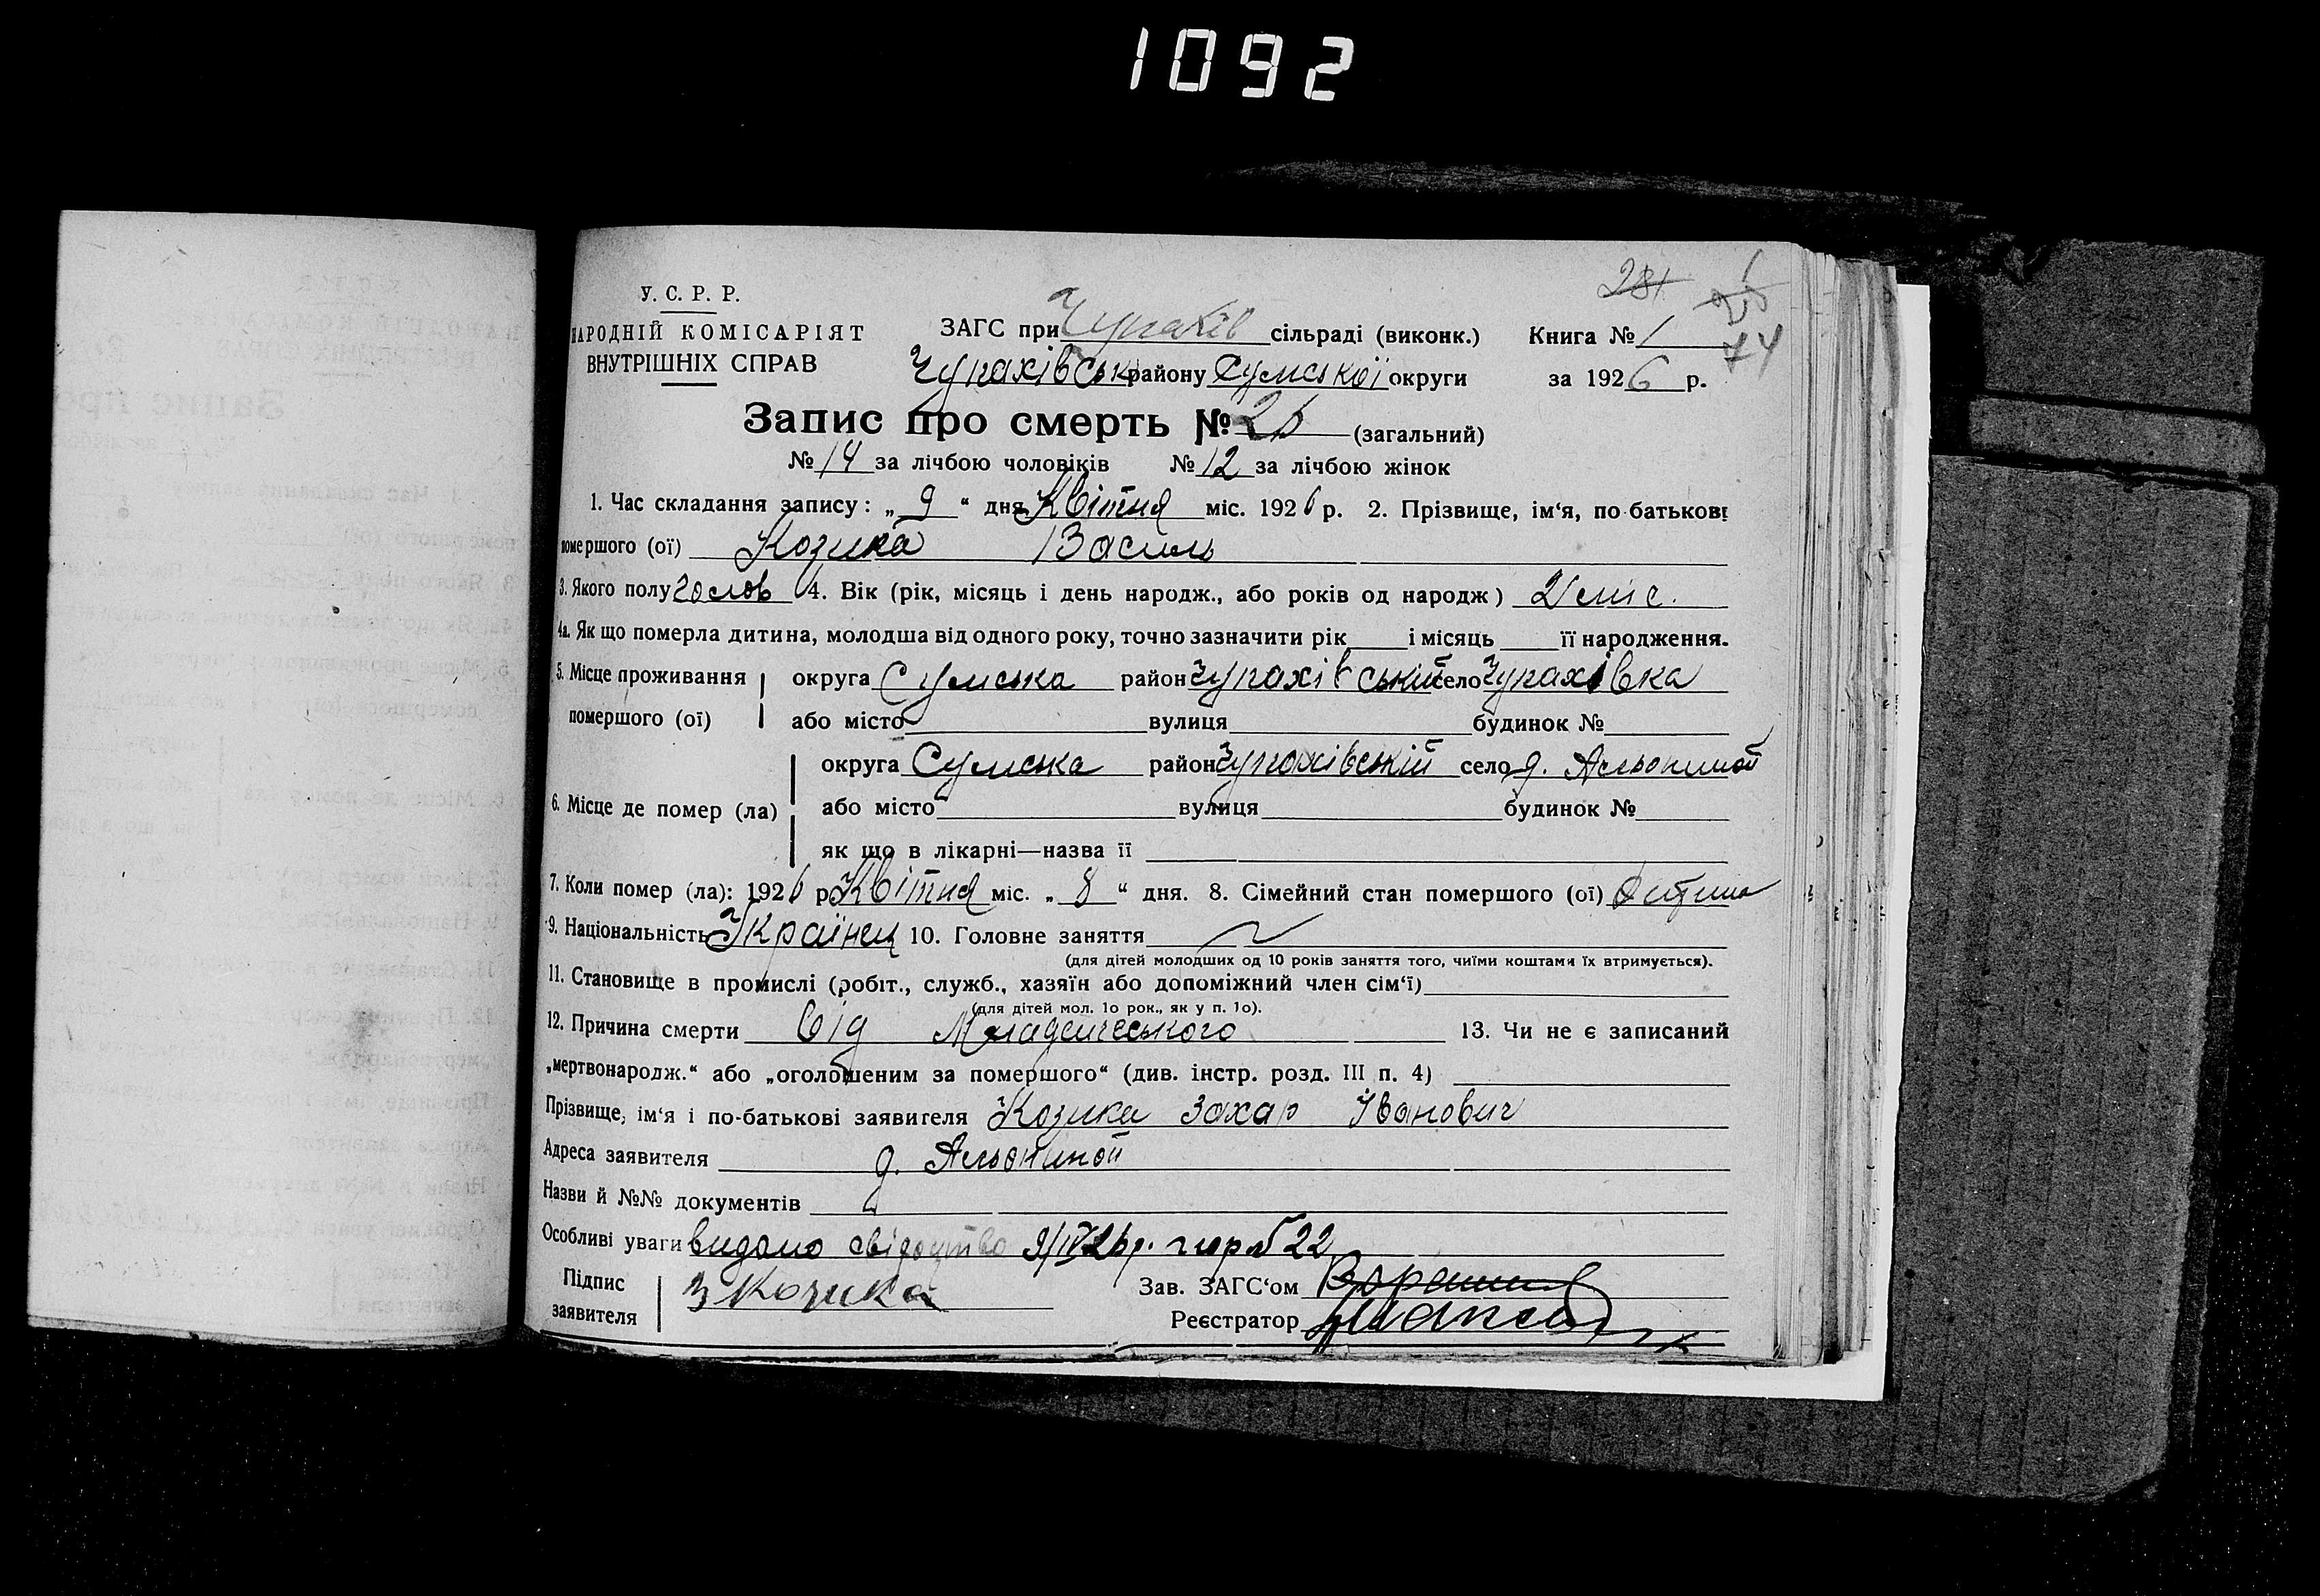 1092
281 25 1
74
У. С. Р. Р.
НАРОДНІЙ КОМІСАРІЯТ
ВНУТРІШНІХ СПРАВ
ЗАГС при Чупахів сільраді (виконк.) Книга № 1
Чупахівськ району Сумської округи за 1926 р.
Запис про смерть № 26 (загальний)
№ 14 за лічбою чоловіків № 12 за лічбою жінок
1. Час складання запису: „ 9 “ дня Квітня міс. 1926 р. 2. Прізвище, ім‘я, по-батькові
помершого (ої) Козика Василь
3. Якого полу чолов 4. Вік (рік, місяць і день народж., або років од народж) 2 міс.
4а. Як що померла дитина, молодша від одного року, точно зазначити рік і місяць її народження.
5. Місце проживання округа Сумська район Чупахівський село Чупахівка
помершого (ої) або місто вулиця будинок №
округа Сумська район Чупахівській село д. Альониной
6. Місце де помер (ла) або місто вулиця будинок №
як що в лікарні—назва її
7. Коли помер (ла): 1926 р. Квітня міс. „ 8 “ дня. 8. Сімейний стан помершого (ої)
9. Національність Українец 10. Головне заняття
(для дітей молодших од 10 років заняття того, чиїми коштами їх втримується).
11. Становище в промислі (робіт., служб., хазяїн або допоміжний член сім‘ї)
(для дітей мол. 1о рок., як у п. 1о).
12. Причина смерти від Младенчеського 13. Чи не є записаний
„мертвонародж.“ або „оголошеним за помершого“ (див. інстр. розд. III п. 4)
Прізвище, ім‘я і по-батькові заявителя Козика Захар Іванович
Адреса заявителя д. Альониной
Назви й №№ документів
Особливі уваги видано свідоцтво 9/IV26р. № 22
Підпис
заявителя З Козика
Зав. ЗАГС‘ом
Реєстратор